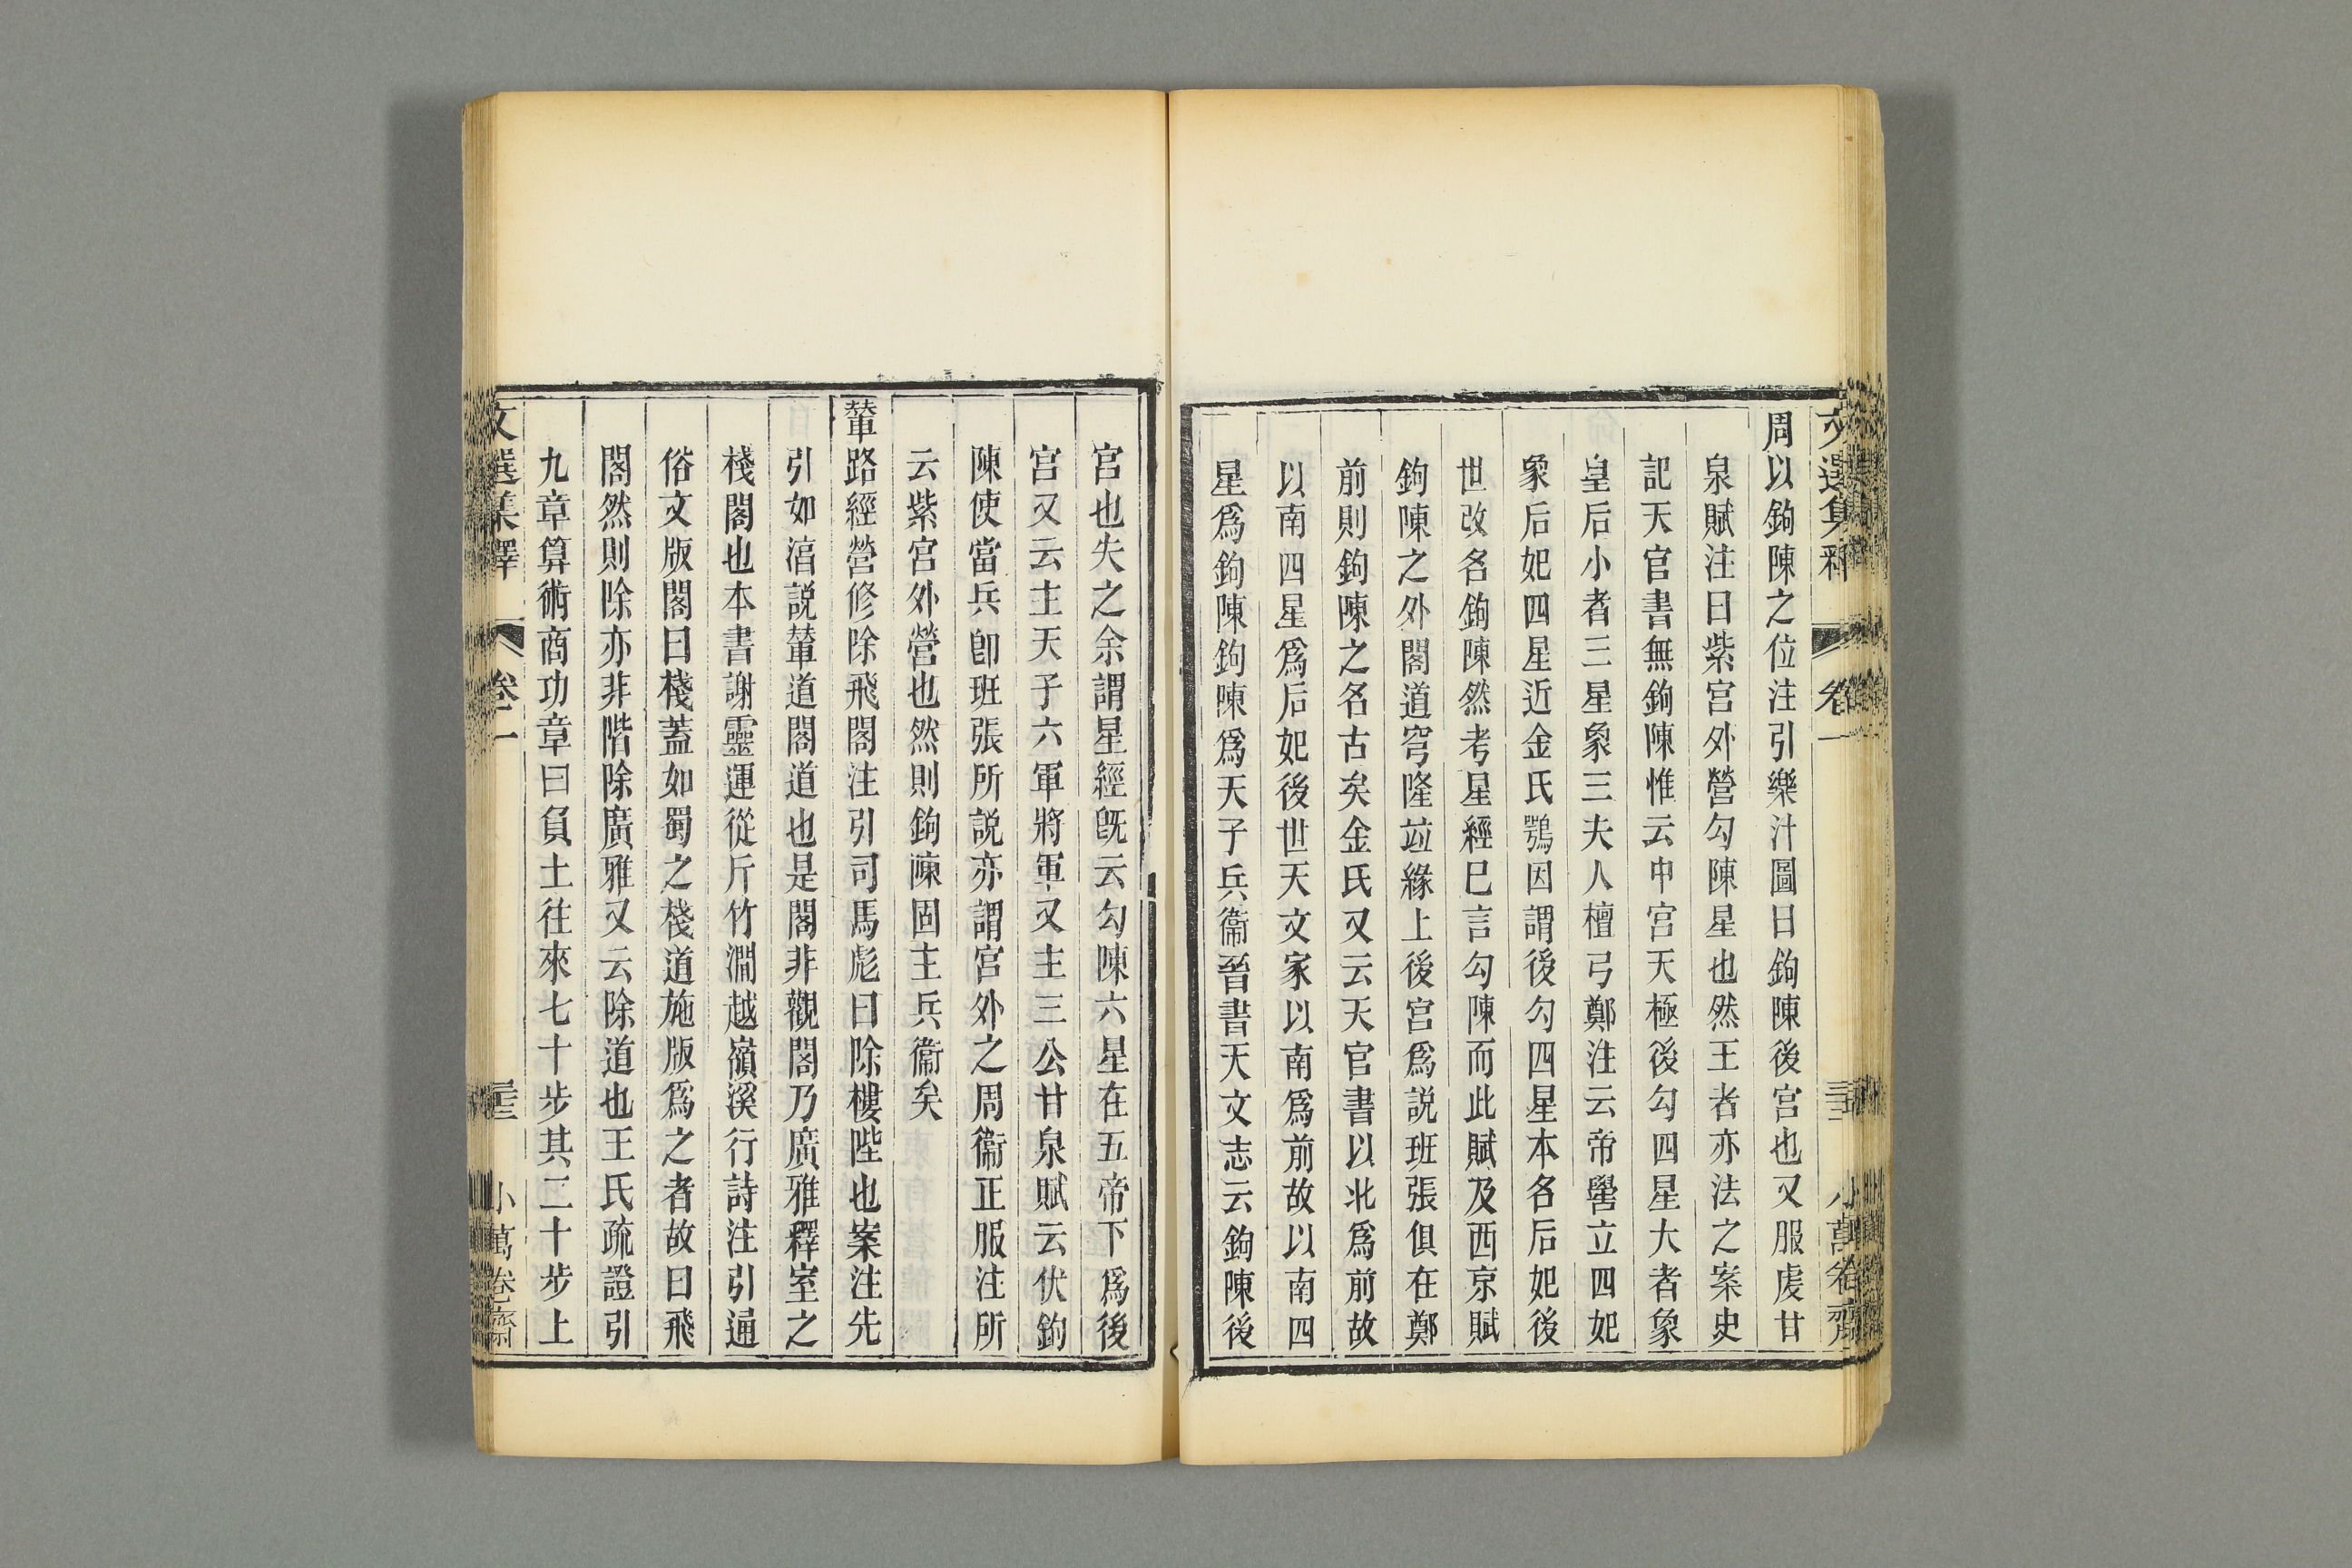 周以鉤陳之位注引樂汁圖曰鉤陳後宮也又服虔甘
泉賦注曰紫宮外營勾陳星也然王者亦法之案史
記天官書無鉤陳惟云中宮天極後勾四星大者象
皇后小者三星象三夫人檀弓鄭注云帝嚳立四妃
象后妃四星近金氏鶚因謂後勾四星本名后妃後
世改名鉤陳然考星經巳言勾陳而此賦及西京賦
鉤陳之外閣道穹隆竝緣上後宮爲説班張俱在鄭
前則鉤陳之名古矣金氏又云天官書以北爲前故
以南四星爲后妃後世天文家以南爲前故以南四
星爲鉤陳鉤陳爲天子兵衞晉書天文志云鉤陳後
宮也失之余謂星經旣云勾陳六星在五帝下爲後
宮又云主天子六軍將軍又主三公甘泉賦云伏鉤
陳使當兵卽班張所説亦謂宮外之周衞正服注所
云紫宮外營也然則鉤陳固主兵衞矣
輦路經營修除飛閣注引司馬彪曰除樓陛也案注先
引如湻説輦道閣道也是閣非觀閣乃廣雅釋室之
棧閣也本書謝靈運從斤竹澗越嶺溪行詩注引通
俗文版閣曰棧蓋如蜀之棧道施版爲之者故曰飛
閣然則除亦非階除廣雅又云除道也王氏疏證引
九章算術商功章曰負土往來七十步其二十步上
文選集釋
卷一
小萬卷齋